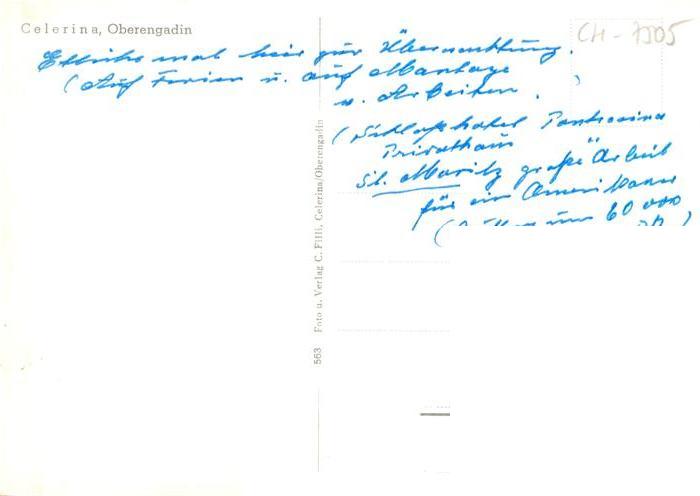 Celerina, Oberengadin
CH-7505
mal hier zur Übernachtung.
(Auf Ferien u. auf Montage
u. Arbeiten.
(Schloßhotel Pontresina
Privathaus
St. Moritz große Arbeit
für ein Amerikaner
60 000
563 Foto u. Verlag C. Filli, Celerina/Oberengadin